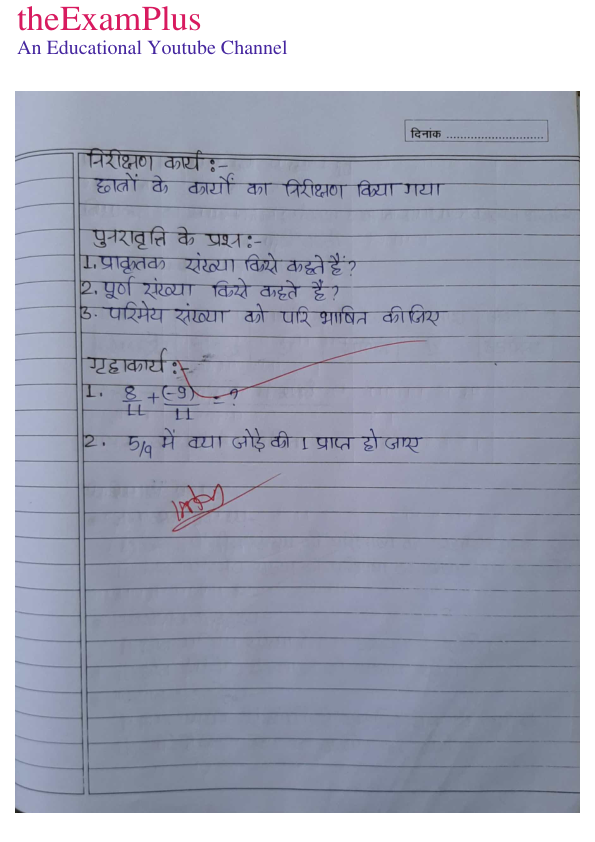 theExamPlus
An Educational Youtube Channel
दिनांक ............................
निरीक्षण कार्य :-
छात्रों के कार्यों का निरीक्षण किया गया
पुनरावृत्ति के प्रश्न :-
1. प्राकृतक संख्या किसे कहते हैं ?
2. पूर्ण संख्या किसे कहते हैं ?
3. परिमेय संख्या को परिभाषित कीजिए
गृहाकार्य :-
1. 8/11 + (-9)/11 = ?
2. 5/9 में क्या जोड़े की 1 प्राप्त हो जाए